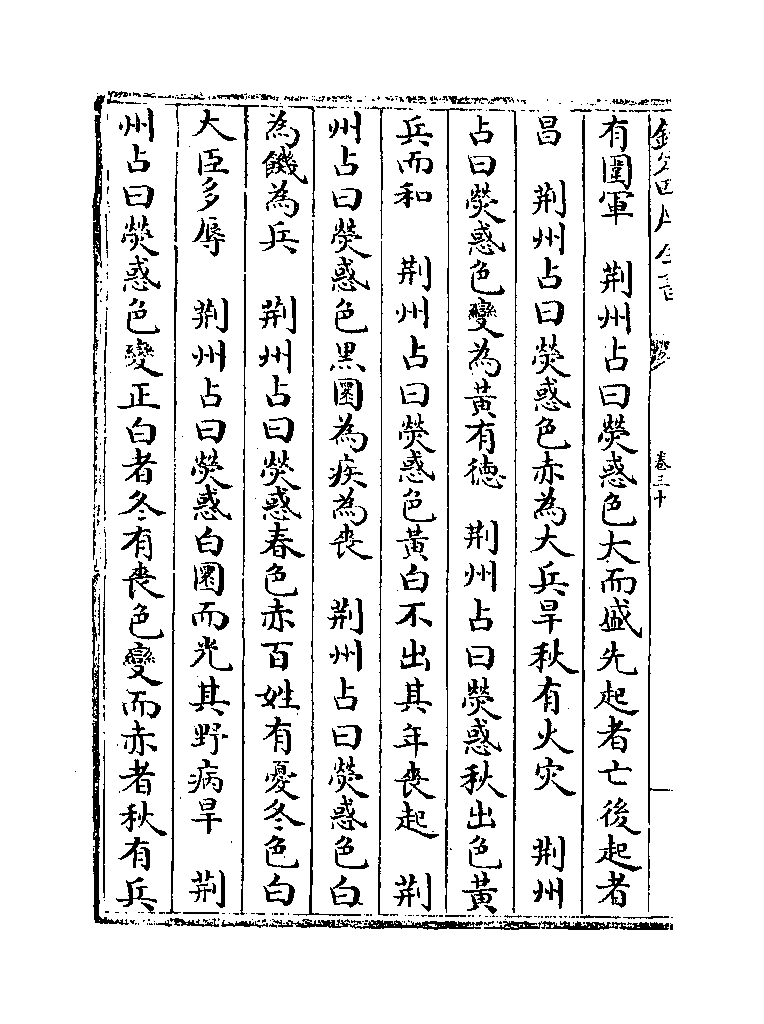 卷三十
有圍軍　荆州占曰熒惑色大而盛先起者亡後起者
昌　荆州占曰熒惑色赤為大兵旱秋有火灾　荆州
占曰熒惑色變為黃有德　荆州占曰熒惑秋出色黃
兵而和　荆州占曰熒惑色黃白不出其年喪起　荆
州占曰熒惑色黑圜為疾為喪　荆州占曰熒惑色白
為饑為兵　荆州占曰熒惑春色赤百姓有憂冬色白
大臣多辱　荆州占曰熒惑白圜而光其野病旱　荆
州占曰熒惑色變正白者冬有喪色變而赤者秋有兵